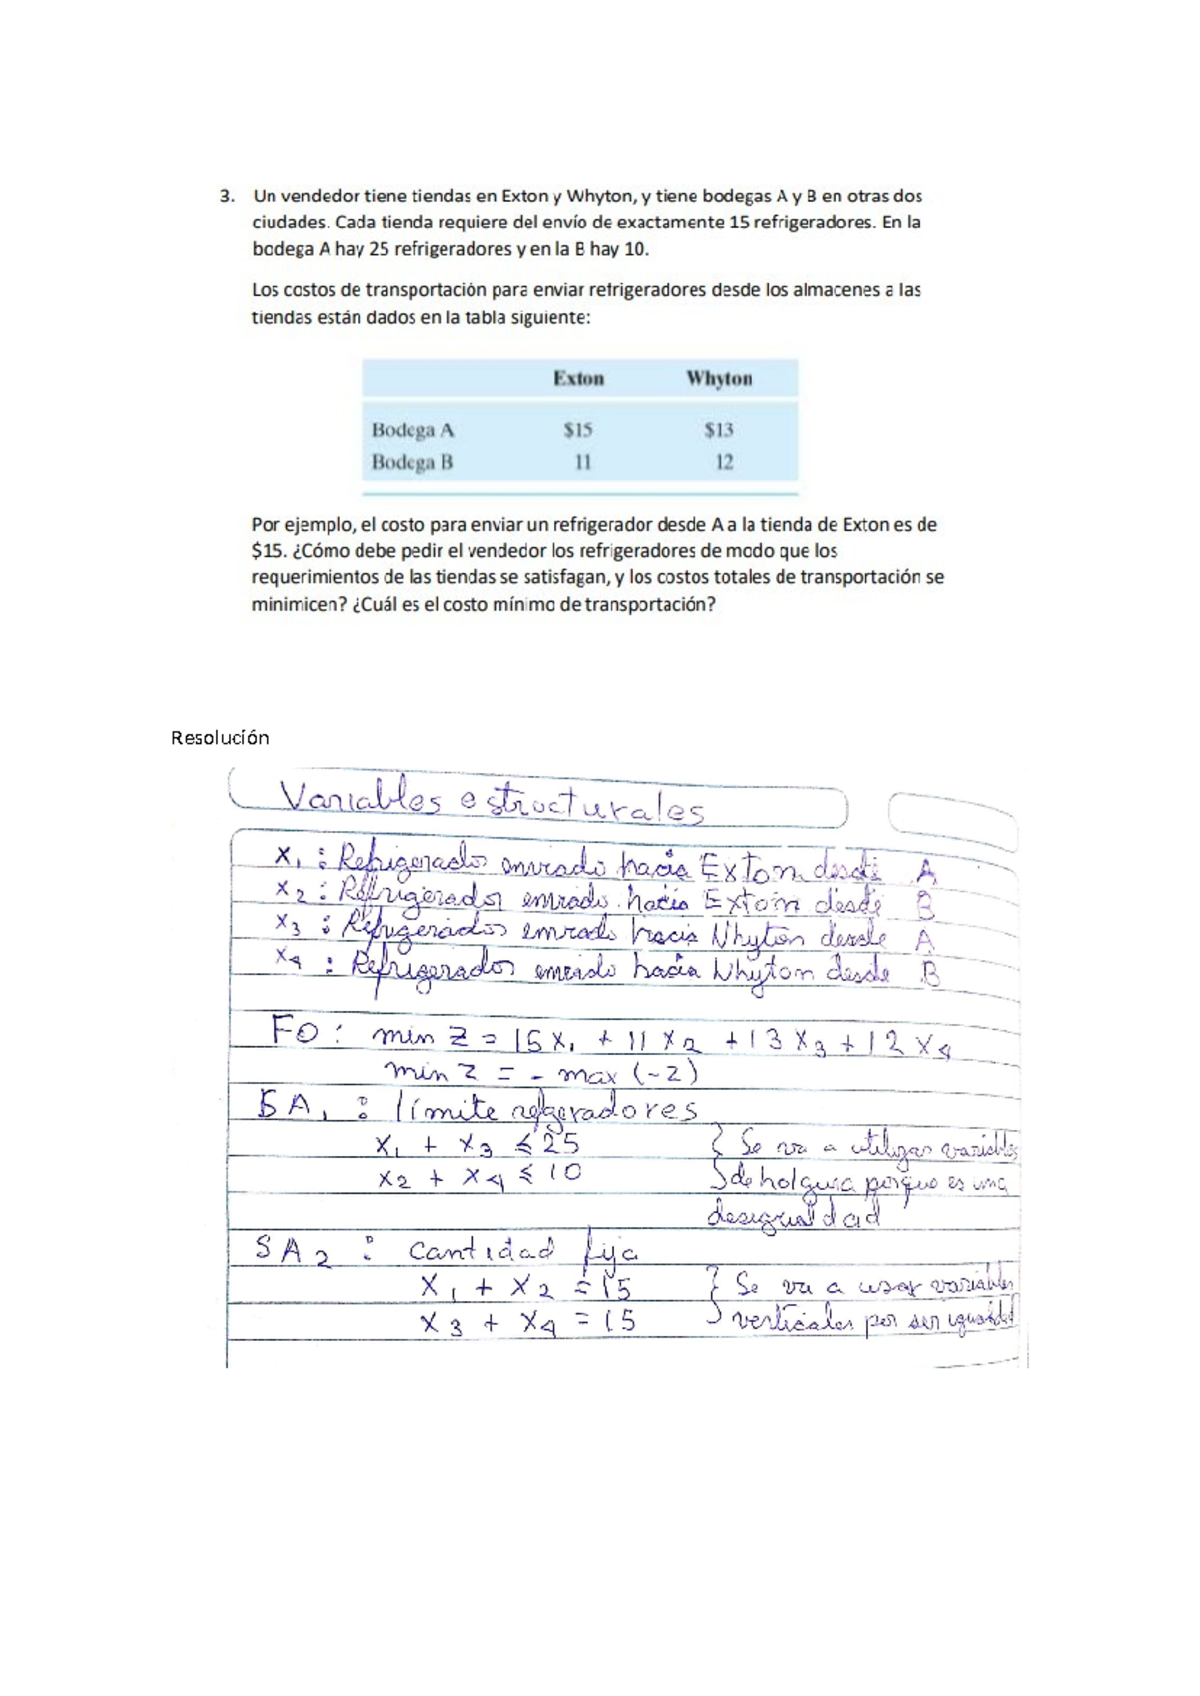 3. Un vendedor tiene tiendas en Exton y Whyton, y tiene bodegas A y B en otras dos
ciudades. Cada tienda requiere del envío de exactamente 15 refrigeradores. En la
bodega A hay 25 refrigeradores y en la B hay 10.
Los costos de transportación para enviar refrigeradores desde los almacenes a las
tiendas están dados en la tabla siguiente:
Exton Whyton
Bodega A $15 $13
Bodega B 11 12
Por ejemplo, el costo para enviar un refrigerador desde A a la tienda de Exton es de
$15. ¿Cómo debe pedir el vendedor los refrigeradores de modo que los
requerimientos de las tiendas se satisfagan, y los costos totales de transportación se
minimicen? ¿Cuál es el costo mínimo de transportación?
Resolución
Variables estructurales
x₁ : Refrigerador enviado hacia Exton desde A
x₂ : Refrigerador enviado hacia Exton desde B
x₃ : Refrigerador enviado hacia Whyton desde A
x₄ : Refrigerador enviado hacia Whyton desde B
FO : min Z = 15x₁ + 11x₂ + 13x₃ + 12x₄
min Z = - max (-Z)
SA₁ : límite refgeradores
x₁ + x₃ ≤ 25 } Se va a utilizar variables
x₂ + x₄ ≤ 10 de holgura porque es una
desigualdad
SA₂ : cantidad fija
x₁ + x₂ = 15 } Se va a usar variables
x₃ + x₄ = 15 verticales por ser igualdad